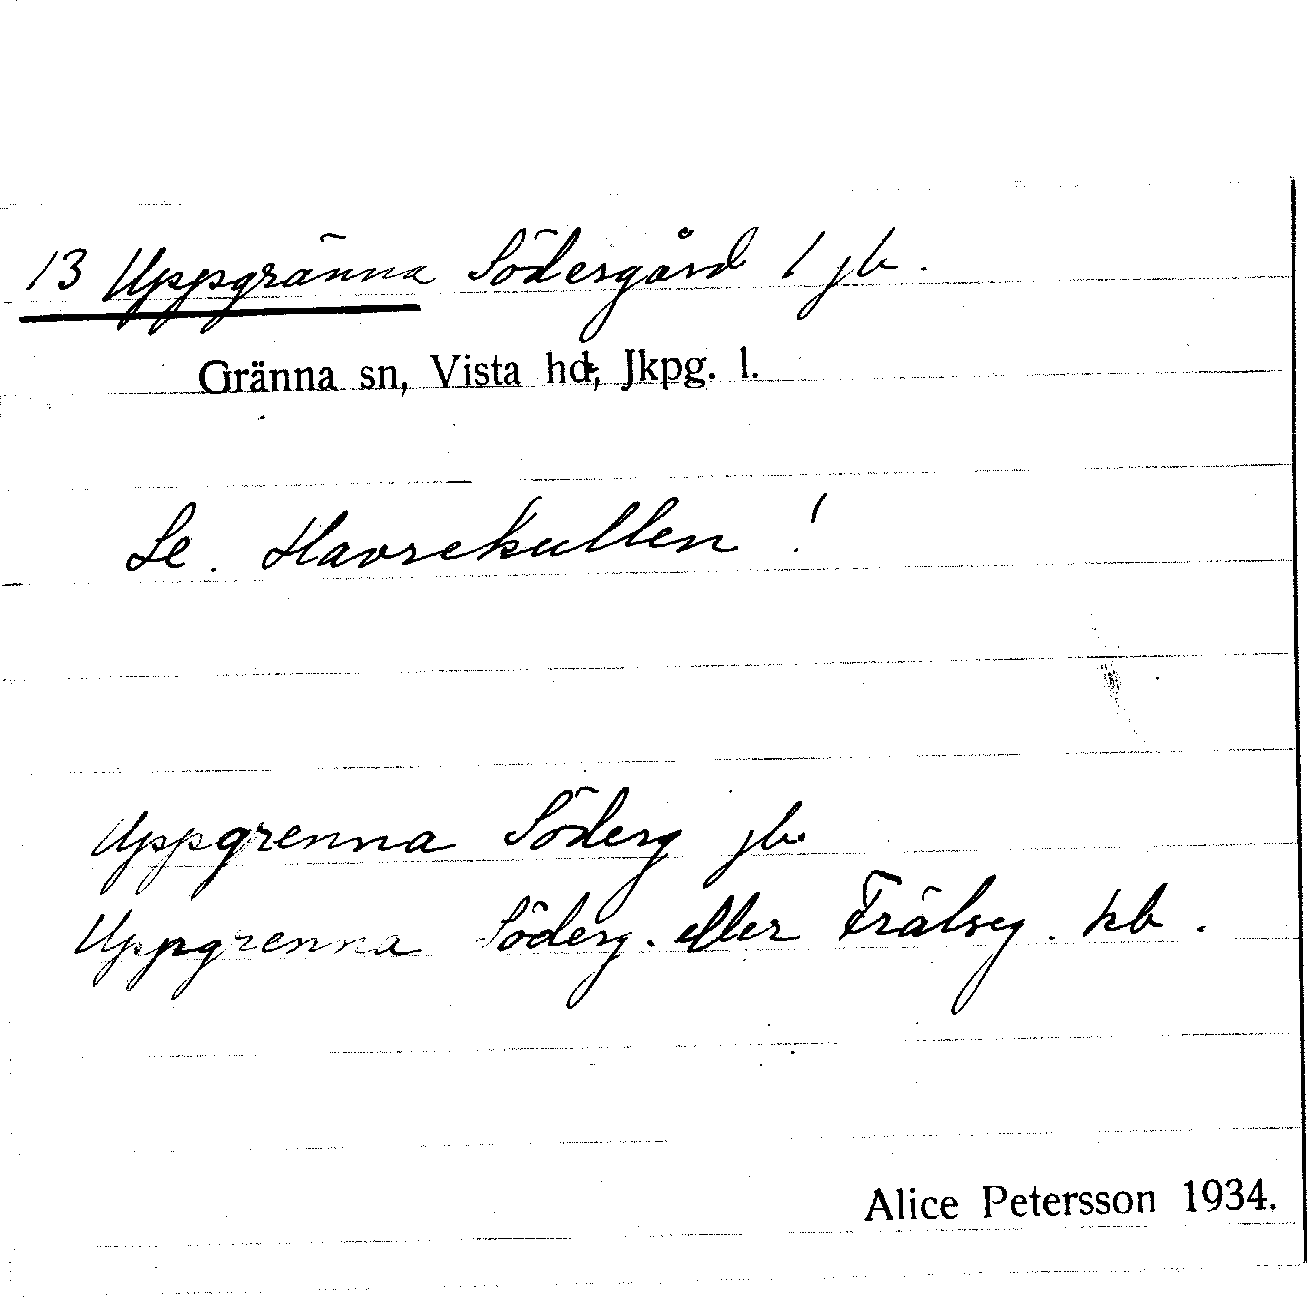 13 Uppgränna Södergård 1 jb.
Gränna sn, Vista hd, Jkpg. l.
Se. Havrekullen!
Uppgrenna Söderg jb.
Uppgrenna Söderg. eller Frälseg. kb.
Alice Petersson 1934.